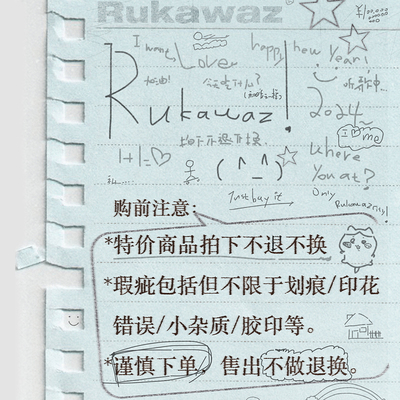 Rukawaz
¥100,000
I want Love happy new Year!
加油!
Rukawaz!
2024
拍下不退不换
I ♡ me
1+1=♡
(^_^)
Where
You at?
Just buy it
Only
购前注意:
*特价商品拍下不退不换
*瑕疵包括但不限于划痕/印花
错误/小杂质/胶印等。
*谨慎下单。售出不做退换。